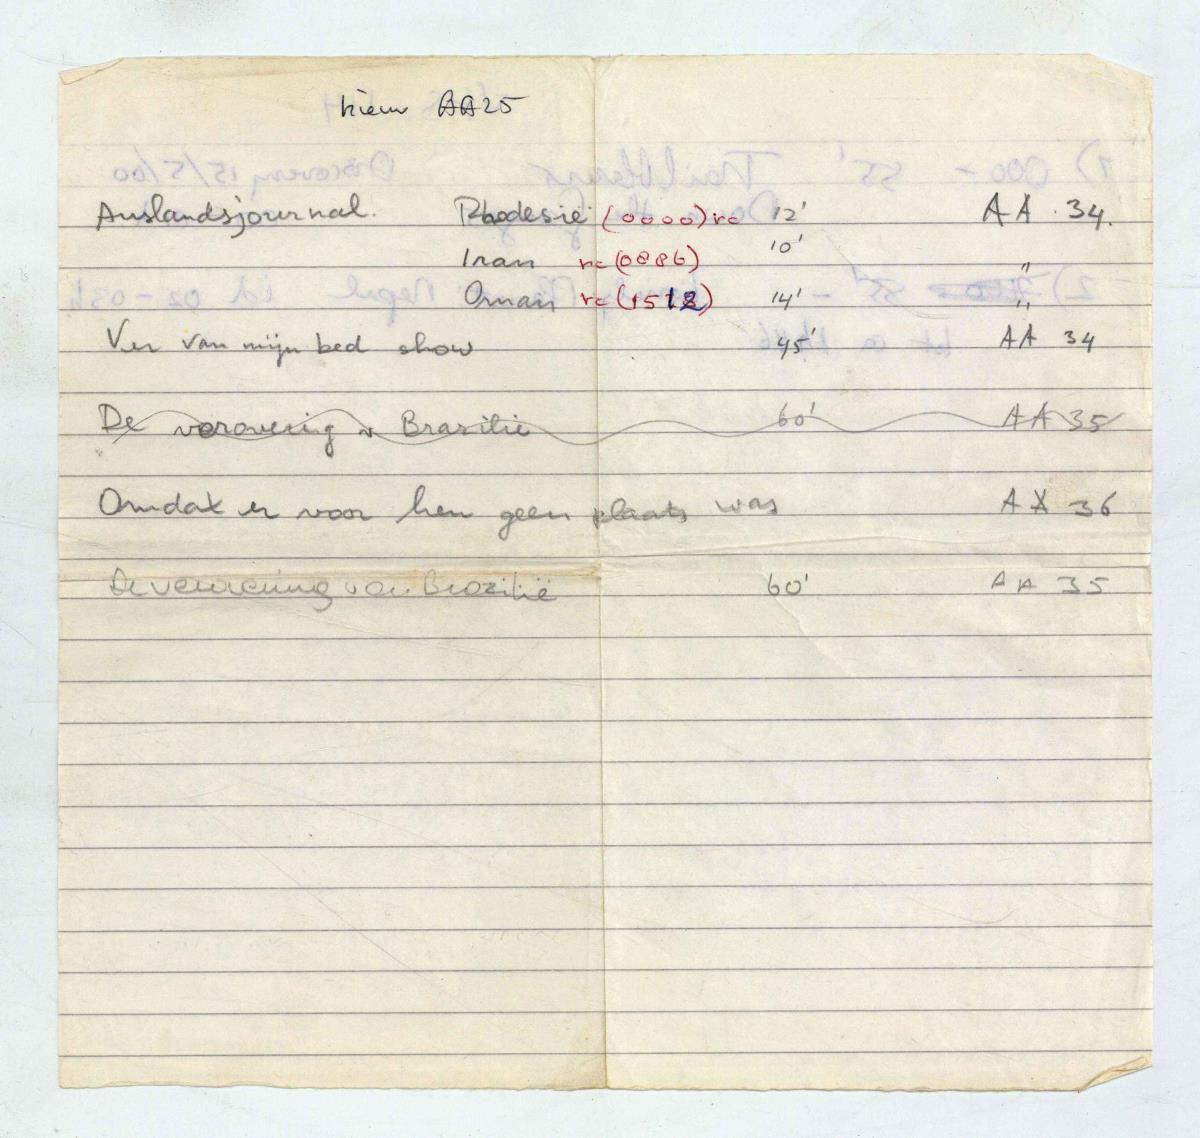 nieuw AA25
Auslandsjournal. Rhodesië (0000) rc 12' AA . 34.
Iran rc (0886) 10' "
Oman rc (1512) 14' "
Ver van mijn bed show 45' AA 34
De verovering v Brazilië 60' AA 35
Omdat er voor hen geen plaats was AA 36
De verovering van Brazilië 60' AA 35